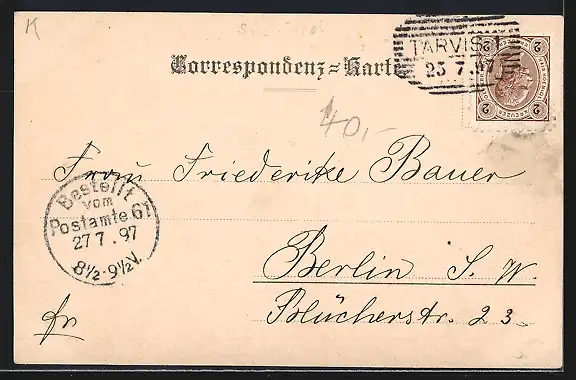 K
TARVIS 1
25 7. 97
2 2
KREUZER
2 2
Correspondenz-Karte
40,-
Frau Friederike Bauer
Bestellt
vom
Postamte 61
27 7. 97
8½-9½V.
Berlin S. W.
Blücherstr. 23
fr